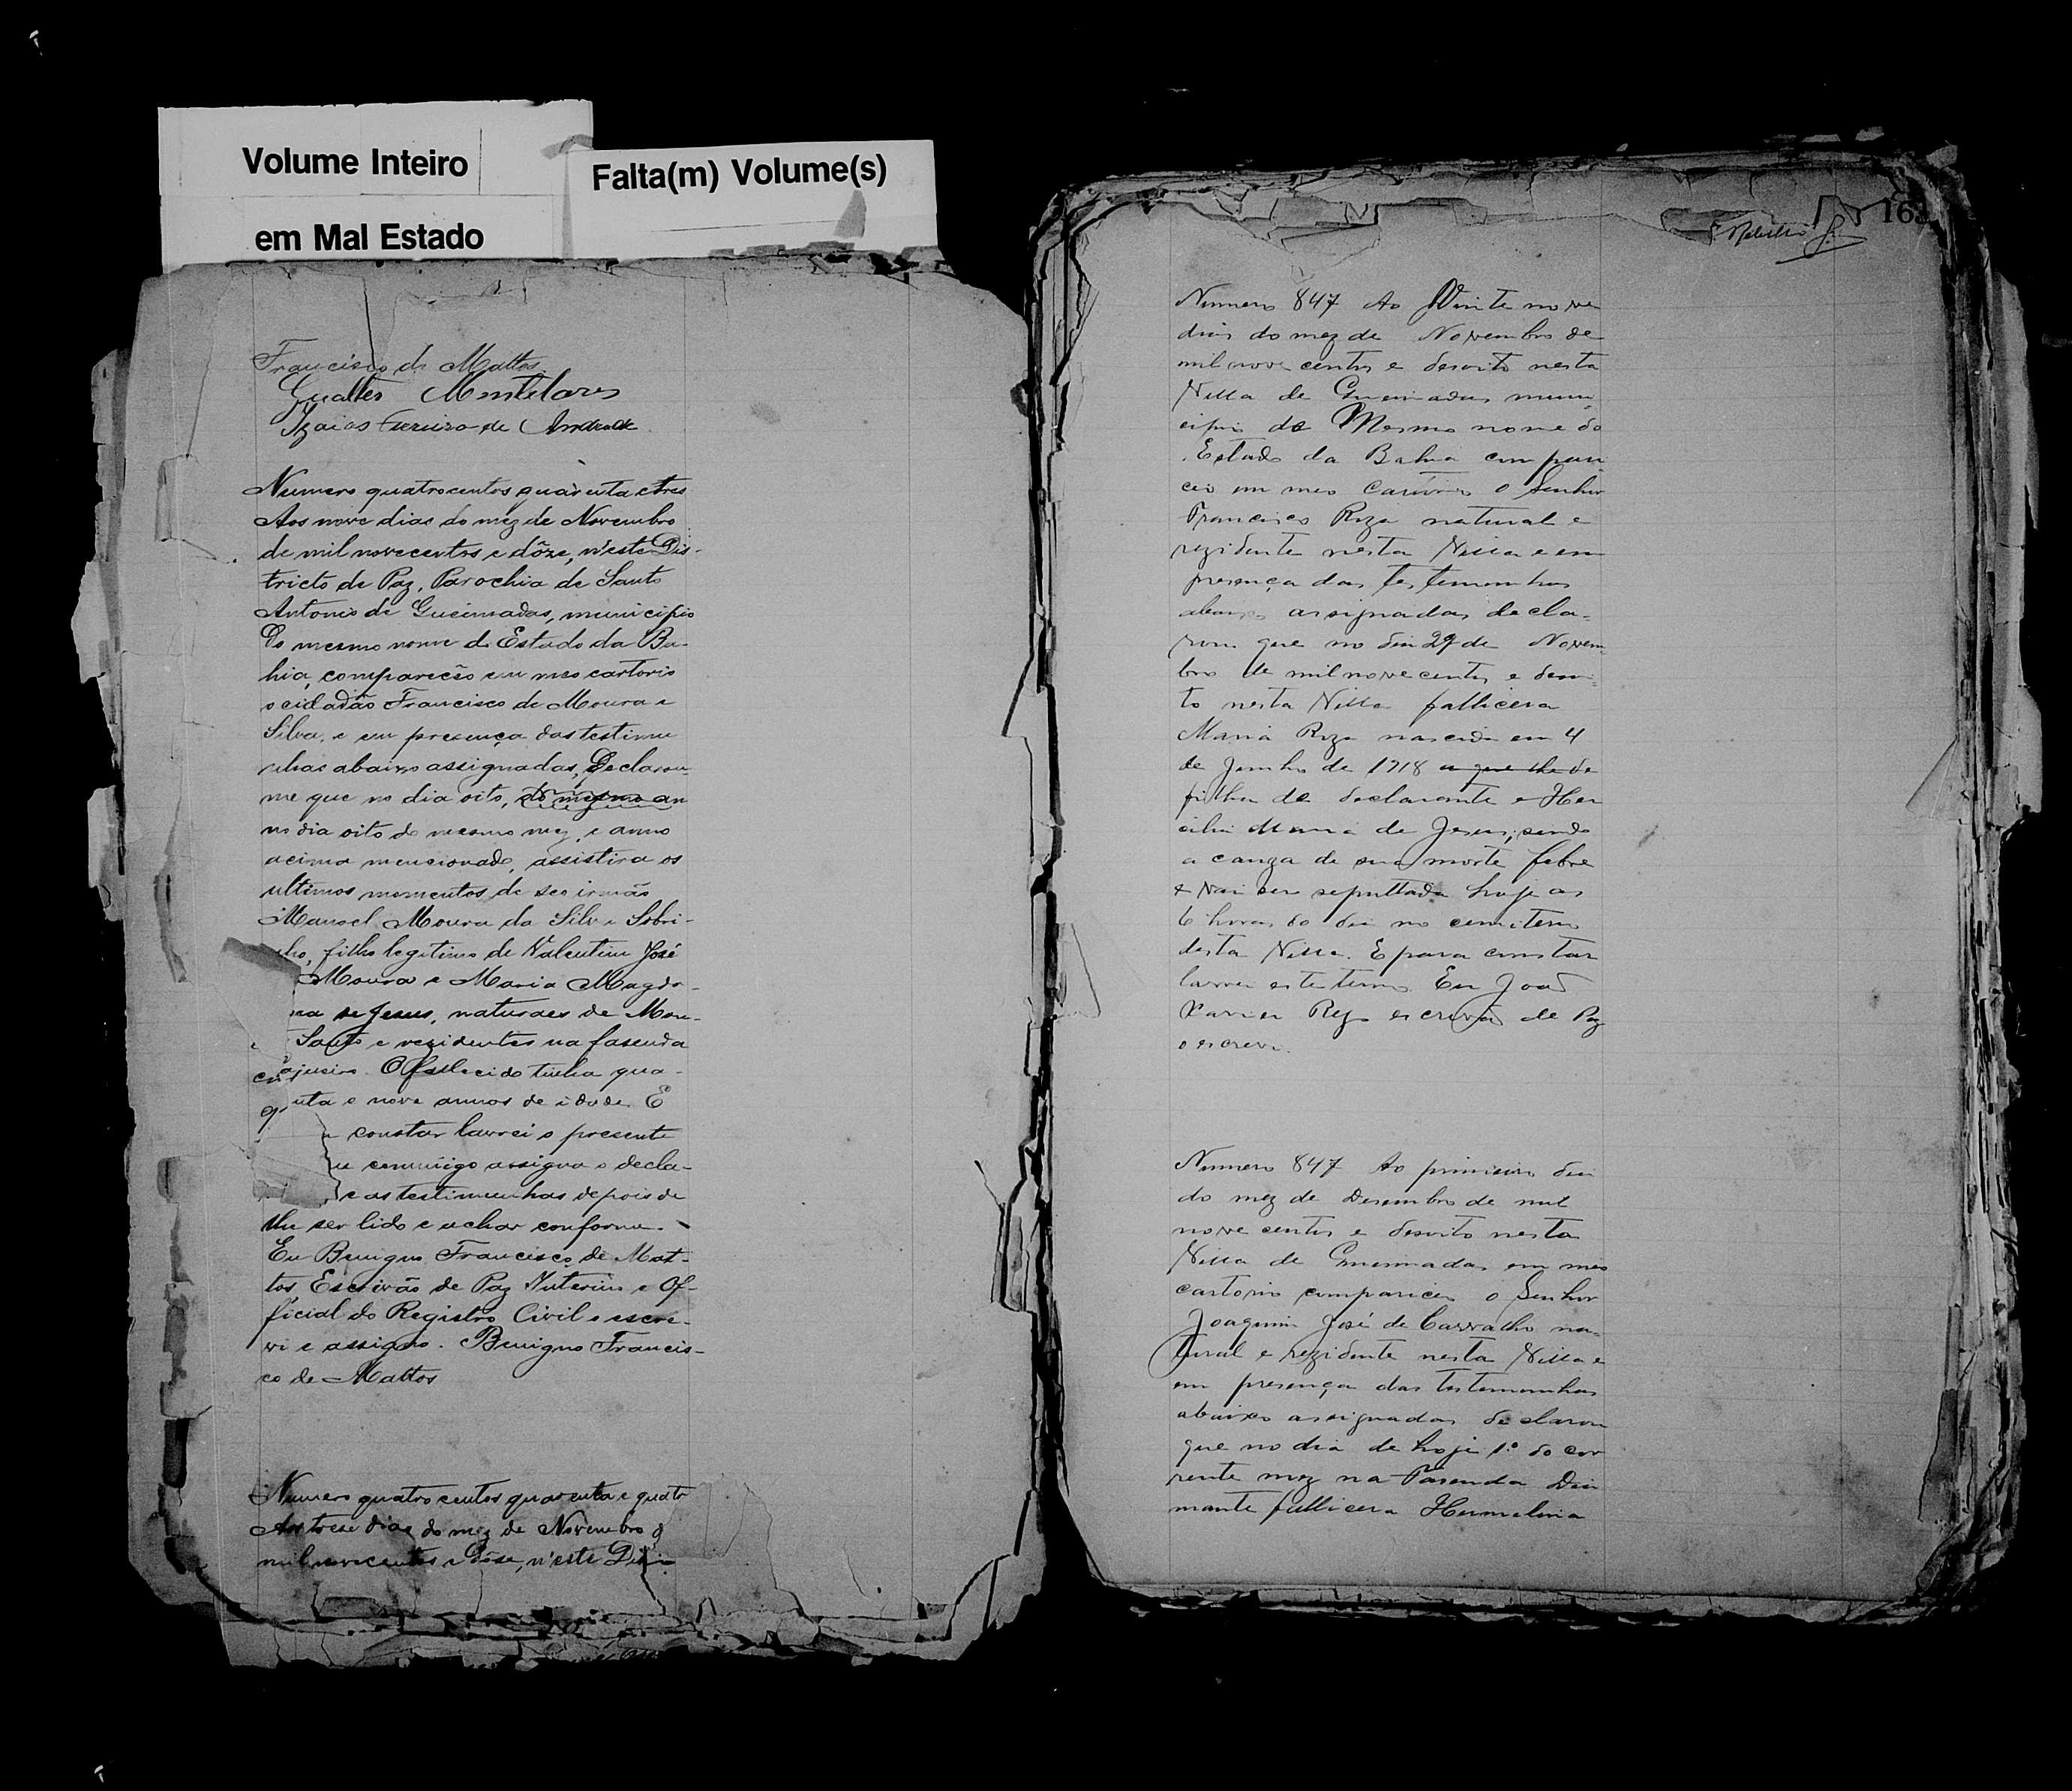 Volume Inteiro
em Mal Estado
Falta(m) Volume(s)
Francisco de Mattos
Gualter
Izaias Ferreira de Andrade
Numero quatrocentos quarenta e tres
Aos nove dias do mez de Novembro
de mil novecentos e dôze, n'este Dis-
tricto de Paz, Parochia de Santo
Antonio de Queimadas, municipio
do mesmo nome do Estado da Ba-
hia, compareceo em meo cartorio
o cidadão Francisco de Moura e
Silva, e em presença das testimu
nhas abaixo assignadas, declarou-
me que no dia oito, do mesmo an
no dia oito do mesmo mez, e anno
acima mencionado, assistira os
ultimos momentos de seo irmão
Manoel Moura da Silva Sobri-
nho, filho legitimo de Valentim José
Moura e Maria Magda-
na de Jesus, naturaes de Mon-
Santo e rezidentes na fasenda
cajueiro. O fallecido tinha qua-
nta e nove annos de idade. E
constar lavrei o presente
commigo assigna o decla-
e as testimunhas depois de
lhe ser lido e achar conforme.
Eu Benigno Francisco de Mat-
tos, Escrivão de Paz Interino e Of-
ficial do Registro Civil o escre-
vi e assigno. Benigno Francis-
co de Mattos
Numero quatrocentos quarenta e quatr
Aos trese dias do mez de Novembro d
mil novecentos e dôse, n'este Dis-
16
Numero 847 Ao Vinte nove
dias do mez de Novembro de
mil nove centos e desoito nesta
Villa de Queimadas muni
cipio do Mesmo nome do
Estado da Bahia compare
ceo em meo Cartorio o Senhor
Francisco Roza natural e
rezidente nesta Villa e em
presença das testemunhas
abaixo assignadas decla-
rou que no dia 29 de Novem
bro de mil nove centos e desoi-
to nesta Villa fallicera
Maria Roza nascida em 4
de Junho de 1918 a que lhe de
filha do declarante e Her
cilia Maria de Jesus, sendo
a cauza de sua morte febre
e vai ser sepultada hoje as
6 horas do dia no cemiterio
desta Villa. E para constar
lavrei este termo. Eu João
Xavier Rego escrivão de Paz
o escrevi.
Numero 847 Ao primeiro dia
do mez de Desembro de mil
nove centos e desoito nesta
Villa de Queimadas em meo
cartorio compareceo o Senhor
Joaquim José de Carvalho na-
tural e rezidente nesta Villa e
em presença das testemunhas
abaixo assignadas declarou
que no dia de hoje 1º do cor
rente mez na Fasenda Dia
mante fallicera Hermelina